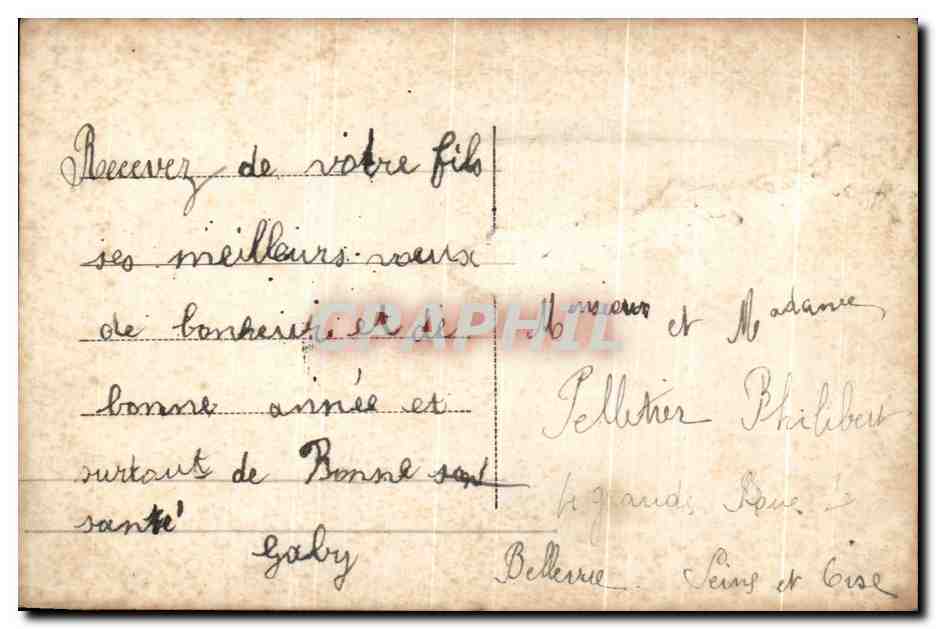 Recevez de votre fils
ses meilleurs voeux
de bonheur et de
bonne année et
surtout de Bonne san
santé
Gaby
Monsieur et Madame
Pelletier Philibert
grande Rue
Bellevue. Seine et Oise
CPAPHIL